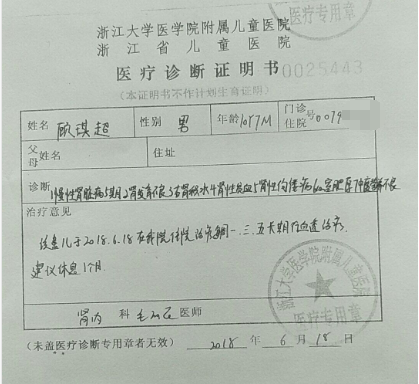 医疗专用章
浙江大学医学院附属儿童医院
浙江省儿童医院
医疗诊断证明书 0025443
(本证明书不作计划生育证明)
姓名 顾琪超 性别 男 年龄 10Y7M 门诊住院 号 0079
父母 姓名 住址
诊断 1慢性肾脏病5期 2肾发育不良 3右肾积水 4肾性贫血 5肾性骨病 6心室肥厚
治疗意见
该患儿于2018.6.18在我院住院治疗 一.三.五长期行血透治疗
建议休息1个月.
肾内 科 医师
浙江大学医学院附属儿童医院
医疗专用章
(未盖医疗诊断专用章者无效) 2018 年 6 月 18 日